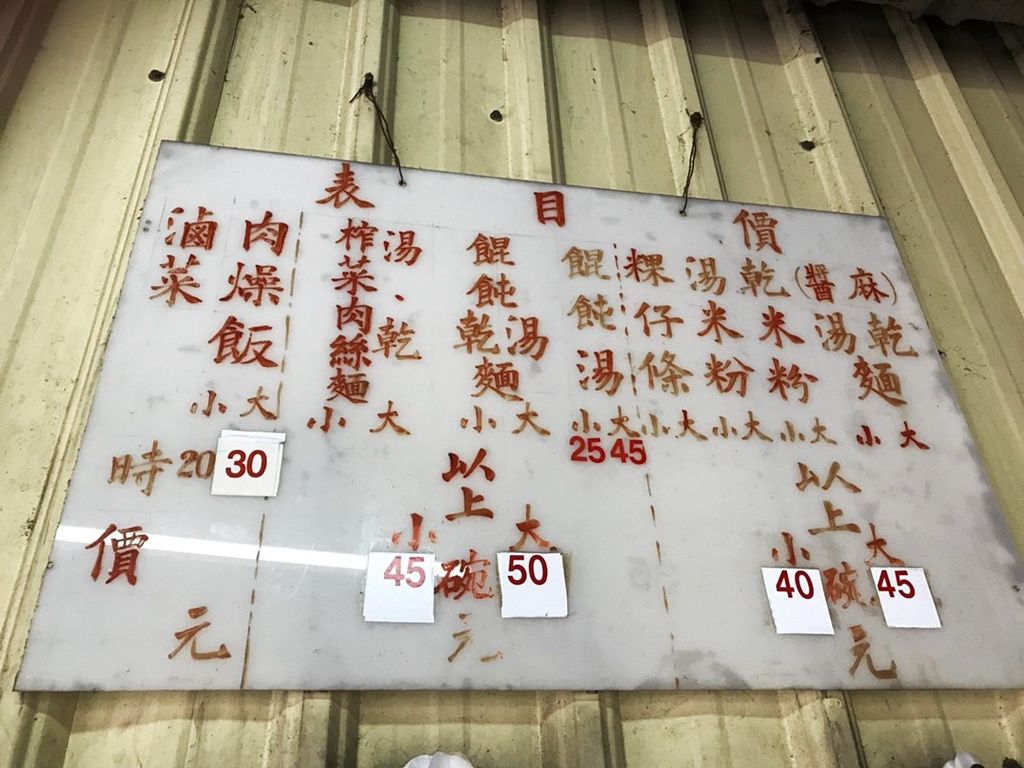 價目表
(麻醬)乾湯麵 小大
乾米粉 小大
湯米粉 小大
粿仔條 小大
以上
小碗40 大45
元
餛飩湯 小25 大45
餛飩湯乾麵 小大
湯、乾
榨菜肉絲麵 小大
以上
小碗45 大50
元
肉燥飯 小20 大30
元
滷菜 時價